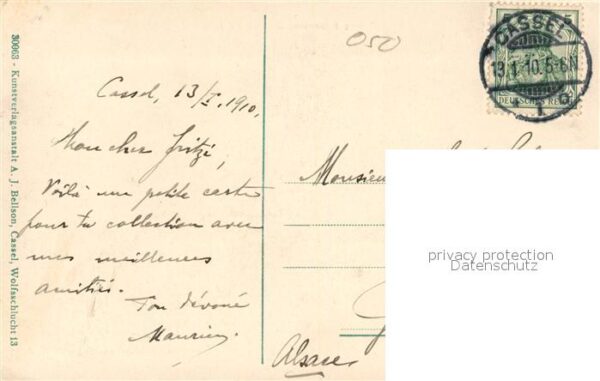 30063 - Kunstverlagsanstalt A. J. Bellson, Cassel, Wolfsschlucht 13
Cassel, 13/I. 1910.
Mon cher Fritzi,
Voilà une petite carte
pour ta collection avec
mes meilleures
amitiés.
Ton dévoué
Maurice.
050
CASSEL
13.1.10.5-6N
DEUTSCHES REICH
Monsieur
Alsace
privacy protection
Datenschutz